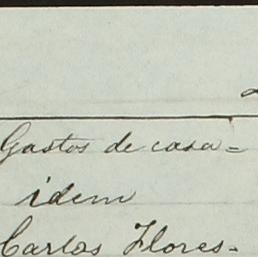 Gastos de casa =
idem
Carlos Flores -